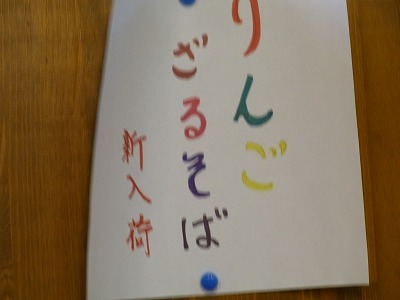 りんご
ざるそば
新入荷